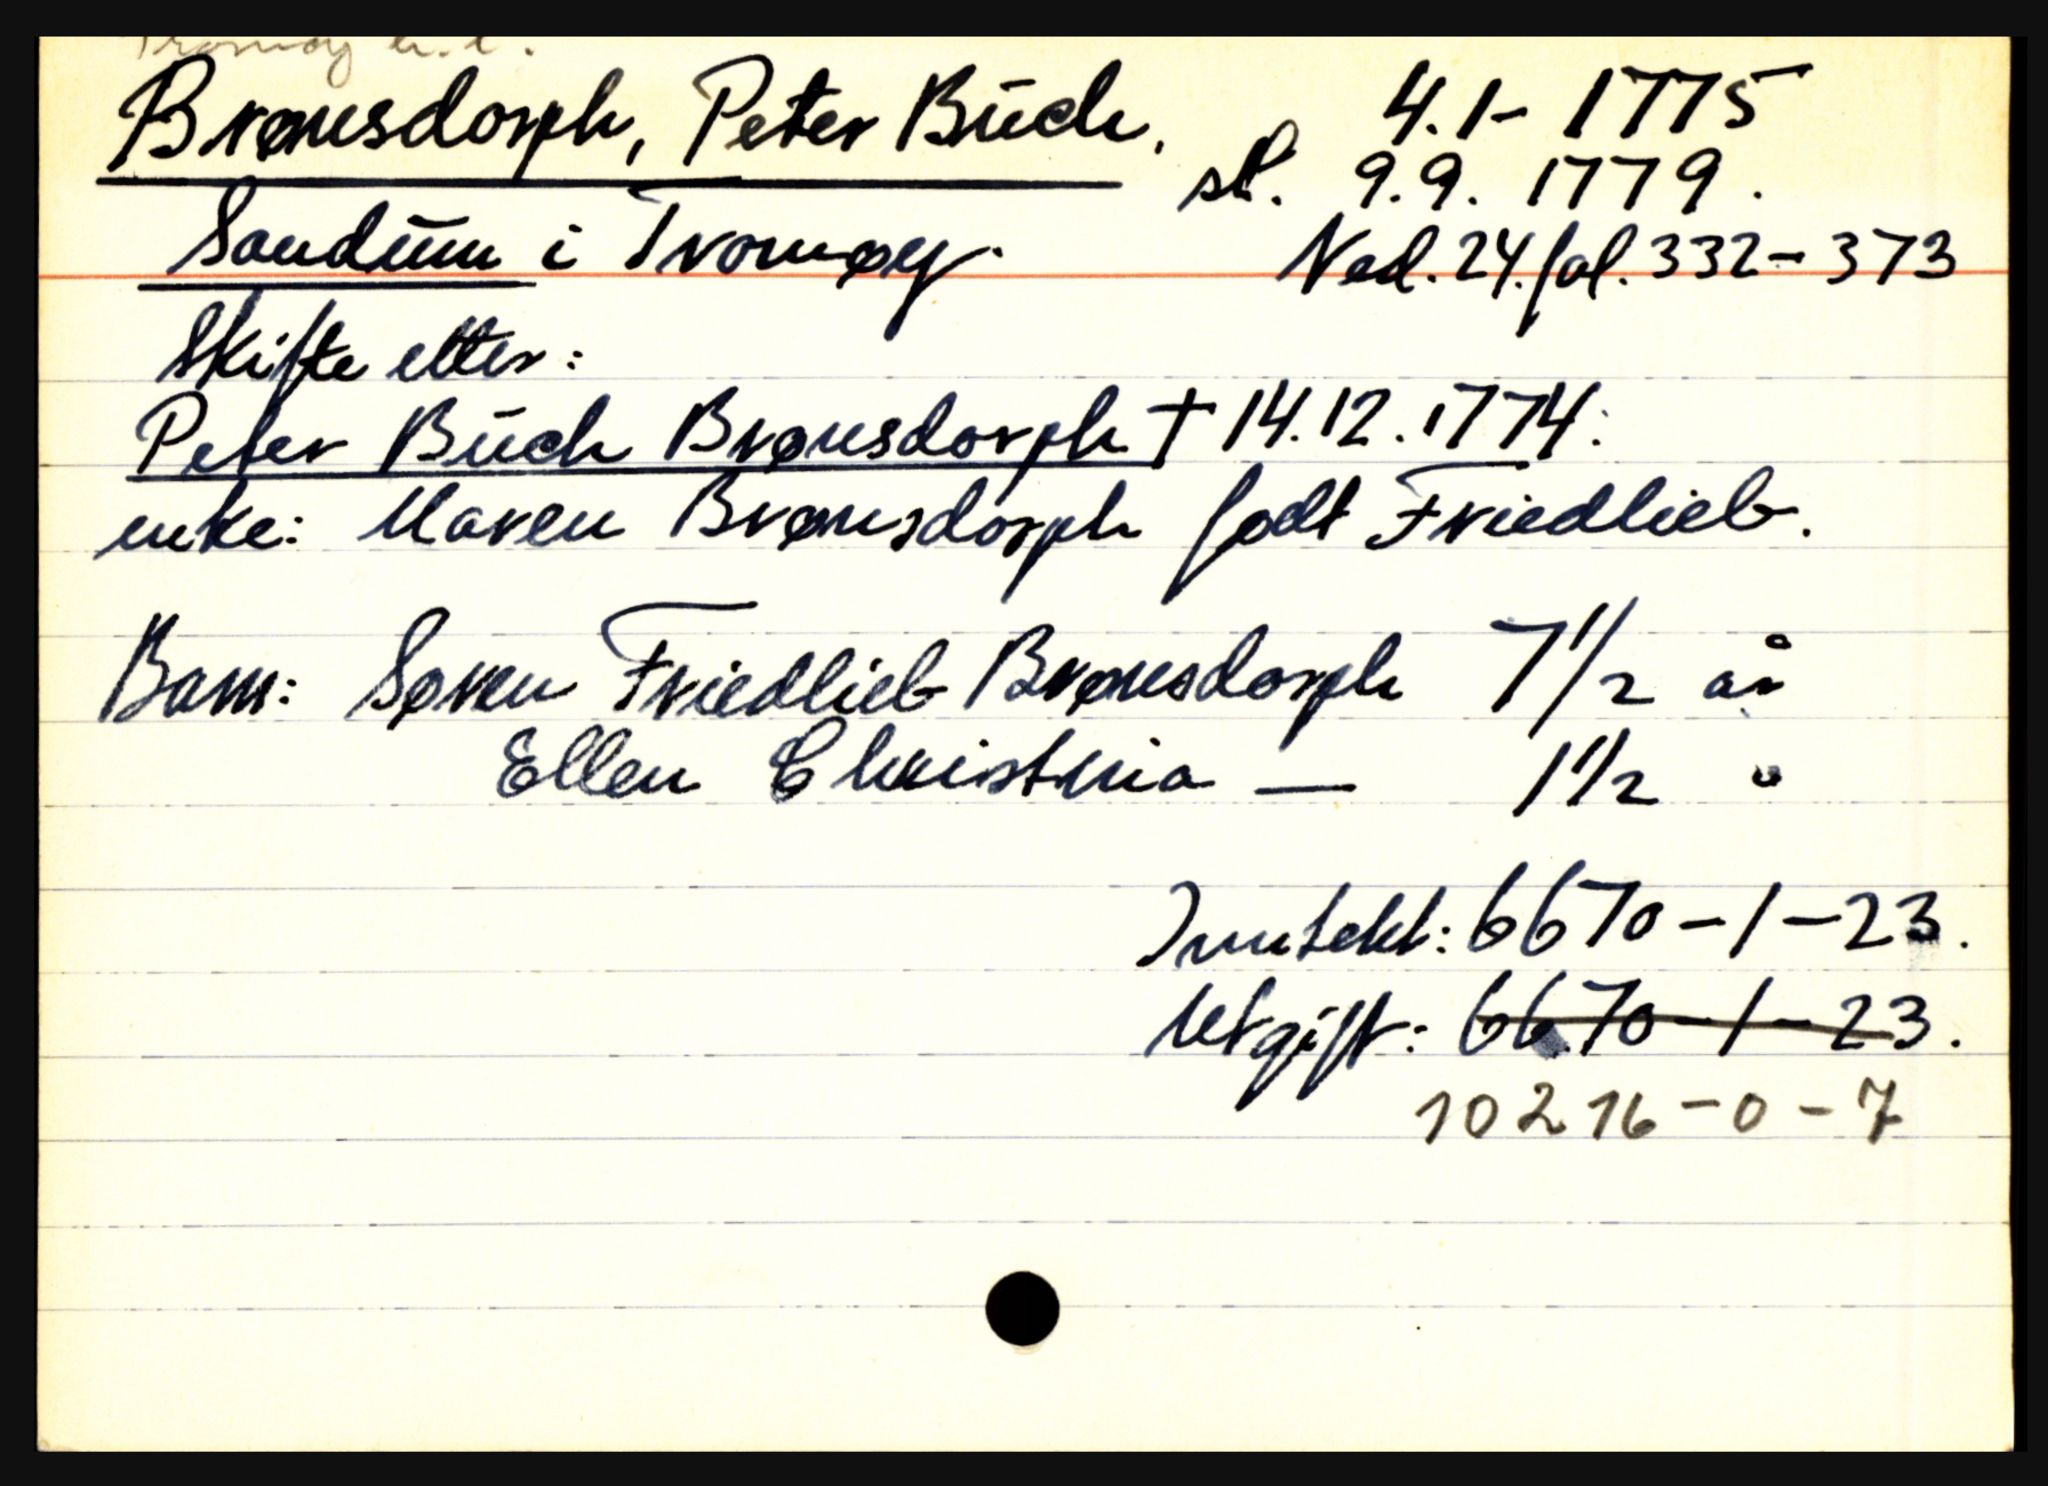 Tromøy
Brønsdorph, Peter Buch. 4.1- 1775
sl. 9.9. 1779.
Sandum i Tromøy. Ned. 24. fol. 332-373
Skifte etter:
Peter Buch Brønsdorph † 14.12.1774:
enke: Maren Brønsdorph født Friedlieb.
Barn: Søren Friedlieb Brønsdorph 7 1/2 år
Ellen Christnia — 1 1/2 "
Inntekt: 6670-1-23.
Utgift: 6670-1-23.
10216-0-7